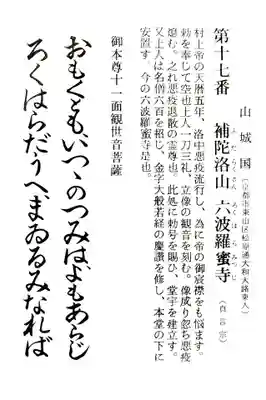 山城国
(京都市東山区松原通大和大路東入)
第十七番 補陀洛山 六波羅蜜寺 (真言宗)
ふだらくさん ろくはらみつじ
村上帝の天暦五年、洛中悪疫流行し、為に帝の御宸襟をも悩ます。
勅を奉じて空也上人一刀三礼、立像の観音を刻む。像成り忽ち悪疫
熄む。之れ悪疫退散の霊尊也。此処に勅号を賜ひ、堂宇を建立す。
又上人は名僧六百を招じ、金字大般若経の慶讃を修し、本堂の下に
安置す。今の六波羅蜜寺是也。
御本尊十一面観世音菩薩
おもくともいつゝのつみはよもあらじ
ろくはらだうへまゐるみなれば